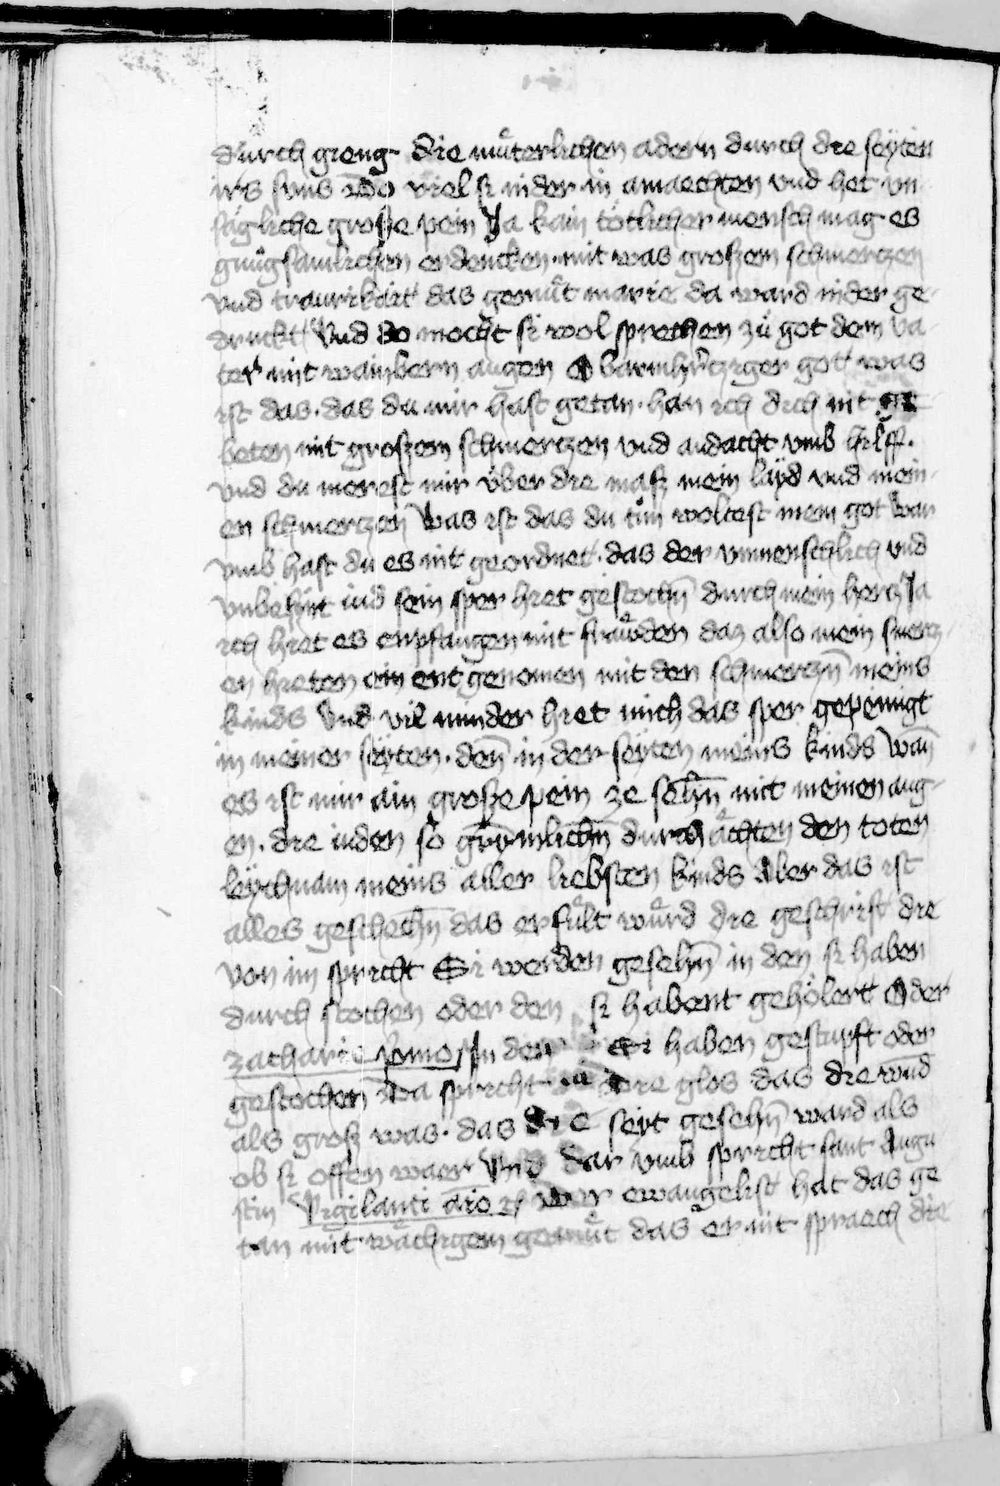 durch gieng die muͤterlichen adern durch die seÿten
irs suns Do viel si nider in amaechten vnd het vn
säglichе grosse pein Ja kain tötlicher mensch mag es
gnuͦgsamlichen erdencken mit was grossem schmerczen
vnd traurikait das gemuͤt marie da ward nider ge-
druckt Vnd do mocht si wol sprechen zuͦ got dem va-
ter mit wainbern augen O barmhʼcziger got was
ist das das du mir hast getan han ich dich nit
beten mit grossem schmerczen vnd andacht vmb hilff.
vnd du merest mir v̈ber die mass mein laÿd vnd mein
en schmerczen Was ist das du tuͦn woltest mein got War
vmb hast du es nit geordnet das der vnmenschlich vnd
iud sein sper hiet gestochñ durch mein hercz Ja
ich hiet es enpfangen mit fraͤuden daz also mein smercz-
en hieten ein ent genomen mit den schmerczñ meins
kinds Vnd vil minder hiet mich das sper gepeinigt
in meiner seÿten. deñ in der seÿten meins kinds Wañ
es ist mir ain grosse pein ze sehñ mit meinen aug-
en. die iuden so durch aͤchten den toten
leÿchnam meins aller liebsten kinds Aber das ist
alles geschechñ das erfuͤlt wuͤrd die geschrift die
von im spricht Si werden gesehñ in den si haben
durch stochen oder den si habent gehölert Oder
zacharie In den si haben gestupft oder
gestochen Da spricht die glos das die wund
als gross was. das die seyt gesehñ ward als
ob si offen waer Vnd dar vmb spricht sant Augu
stin Vigilanti der ewangelist hat das ge
tan mit waͤchigem gemuͤt das er nit spraech die